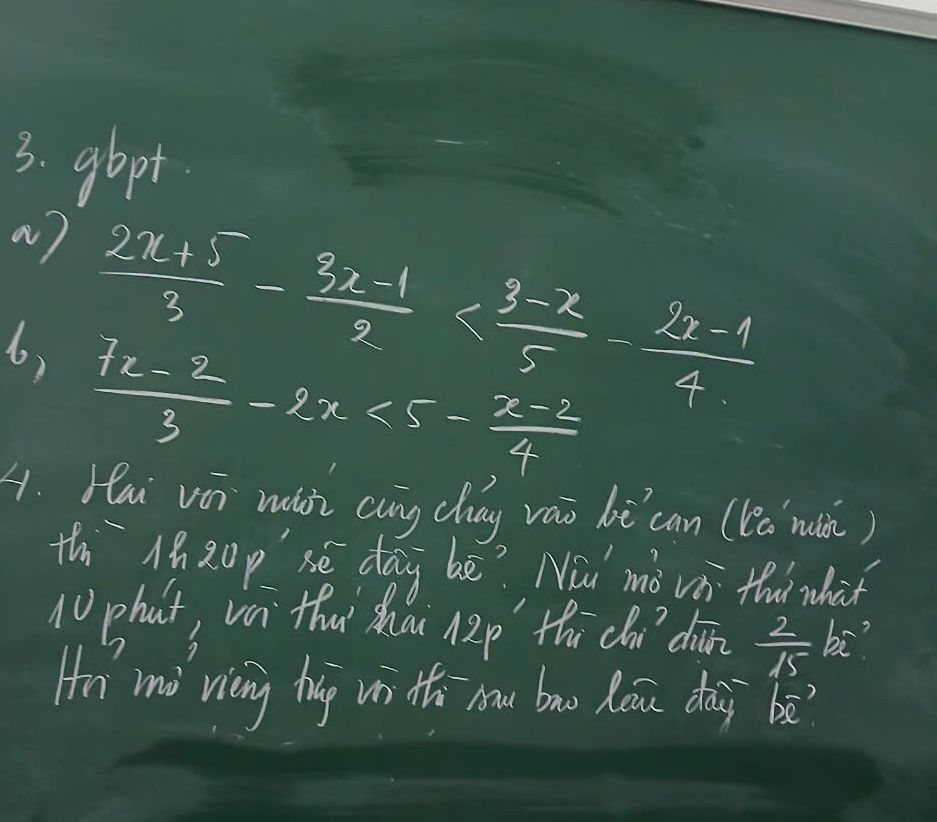 3. gbpt.
a) (2x+5)/3 - (3x-1)/2 < (3-x)/5 - (2x-1)/4.
b, (7x-2)/3 - 2x < 5 - (x-2)/4
4. Hai vòi nước cùng chảy vào bể cạn (k có nước)
thì 1h20p' sẽ đầy bể. Nếu mở vòi thứ nhất
10 phút, vòi thứ hai 12p' thì chỉ được 2/15 bể.
Hỏi mở riêng từng vòi thì sau bao lâu đầy bể?